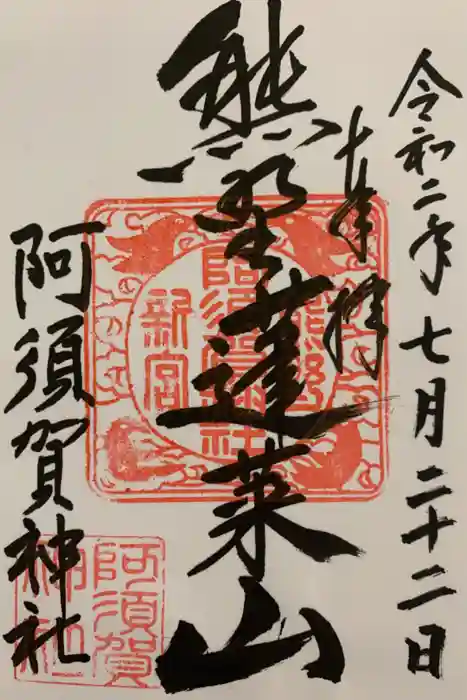 令和二年七月二十二日
奉拝
熊野蓬莱山
阿須賀神社
熊野
阿須賀神社
新宮
阿須賀
神社